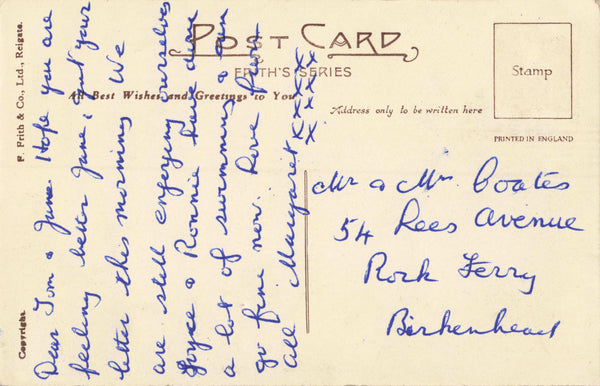 POST CARD
FRITH'S SERIES
All Best Wishes and Greetings to You
Address only to be written here
Stamp
PRINTED IN ENGLAND
F. Frith & Co., Ltd., Reigate.
Copyright.
Dear Tom & June. Hope you are
feeling better Jane, got your
letter this morning. We
are still enjoying ourselves
Joyce & Ronnie have done
a lot of swimming & can
go fine now. Love from
all Margaret xxxxx
xxxxx
Mr & Mrs Coates
54 Rees Avenue
Rock Ferry
Birkenhead